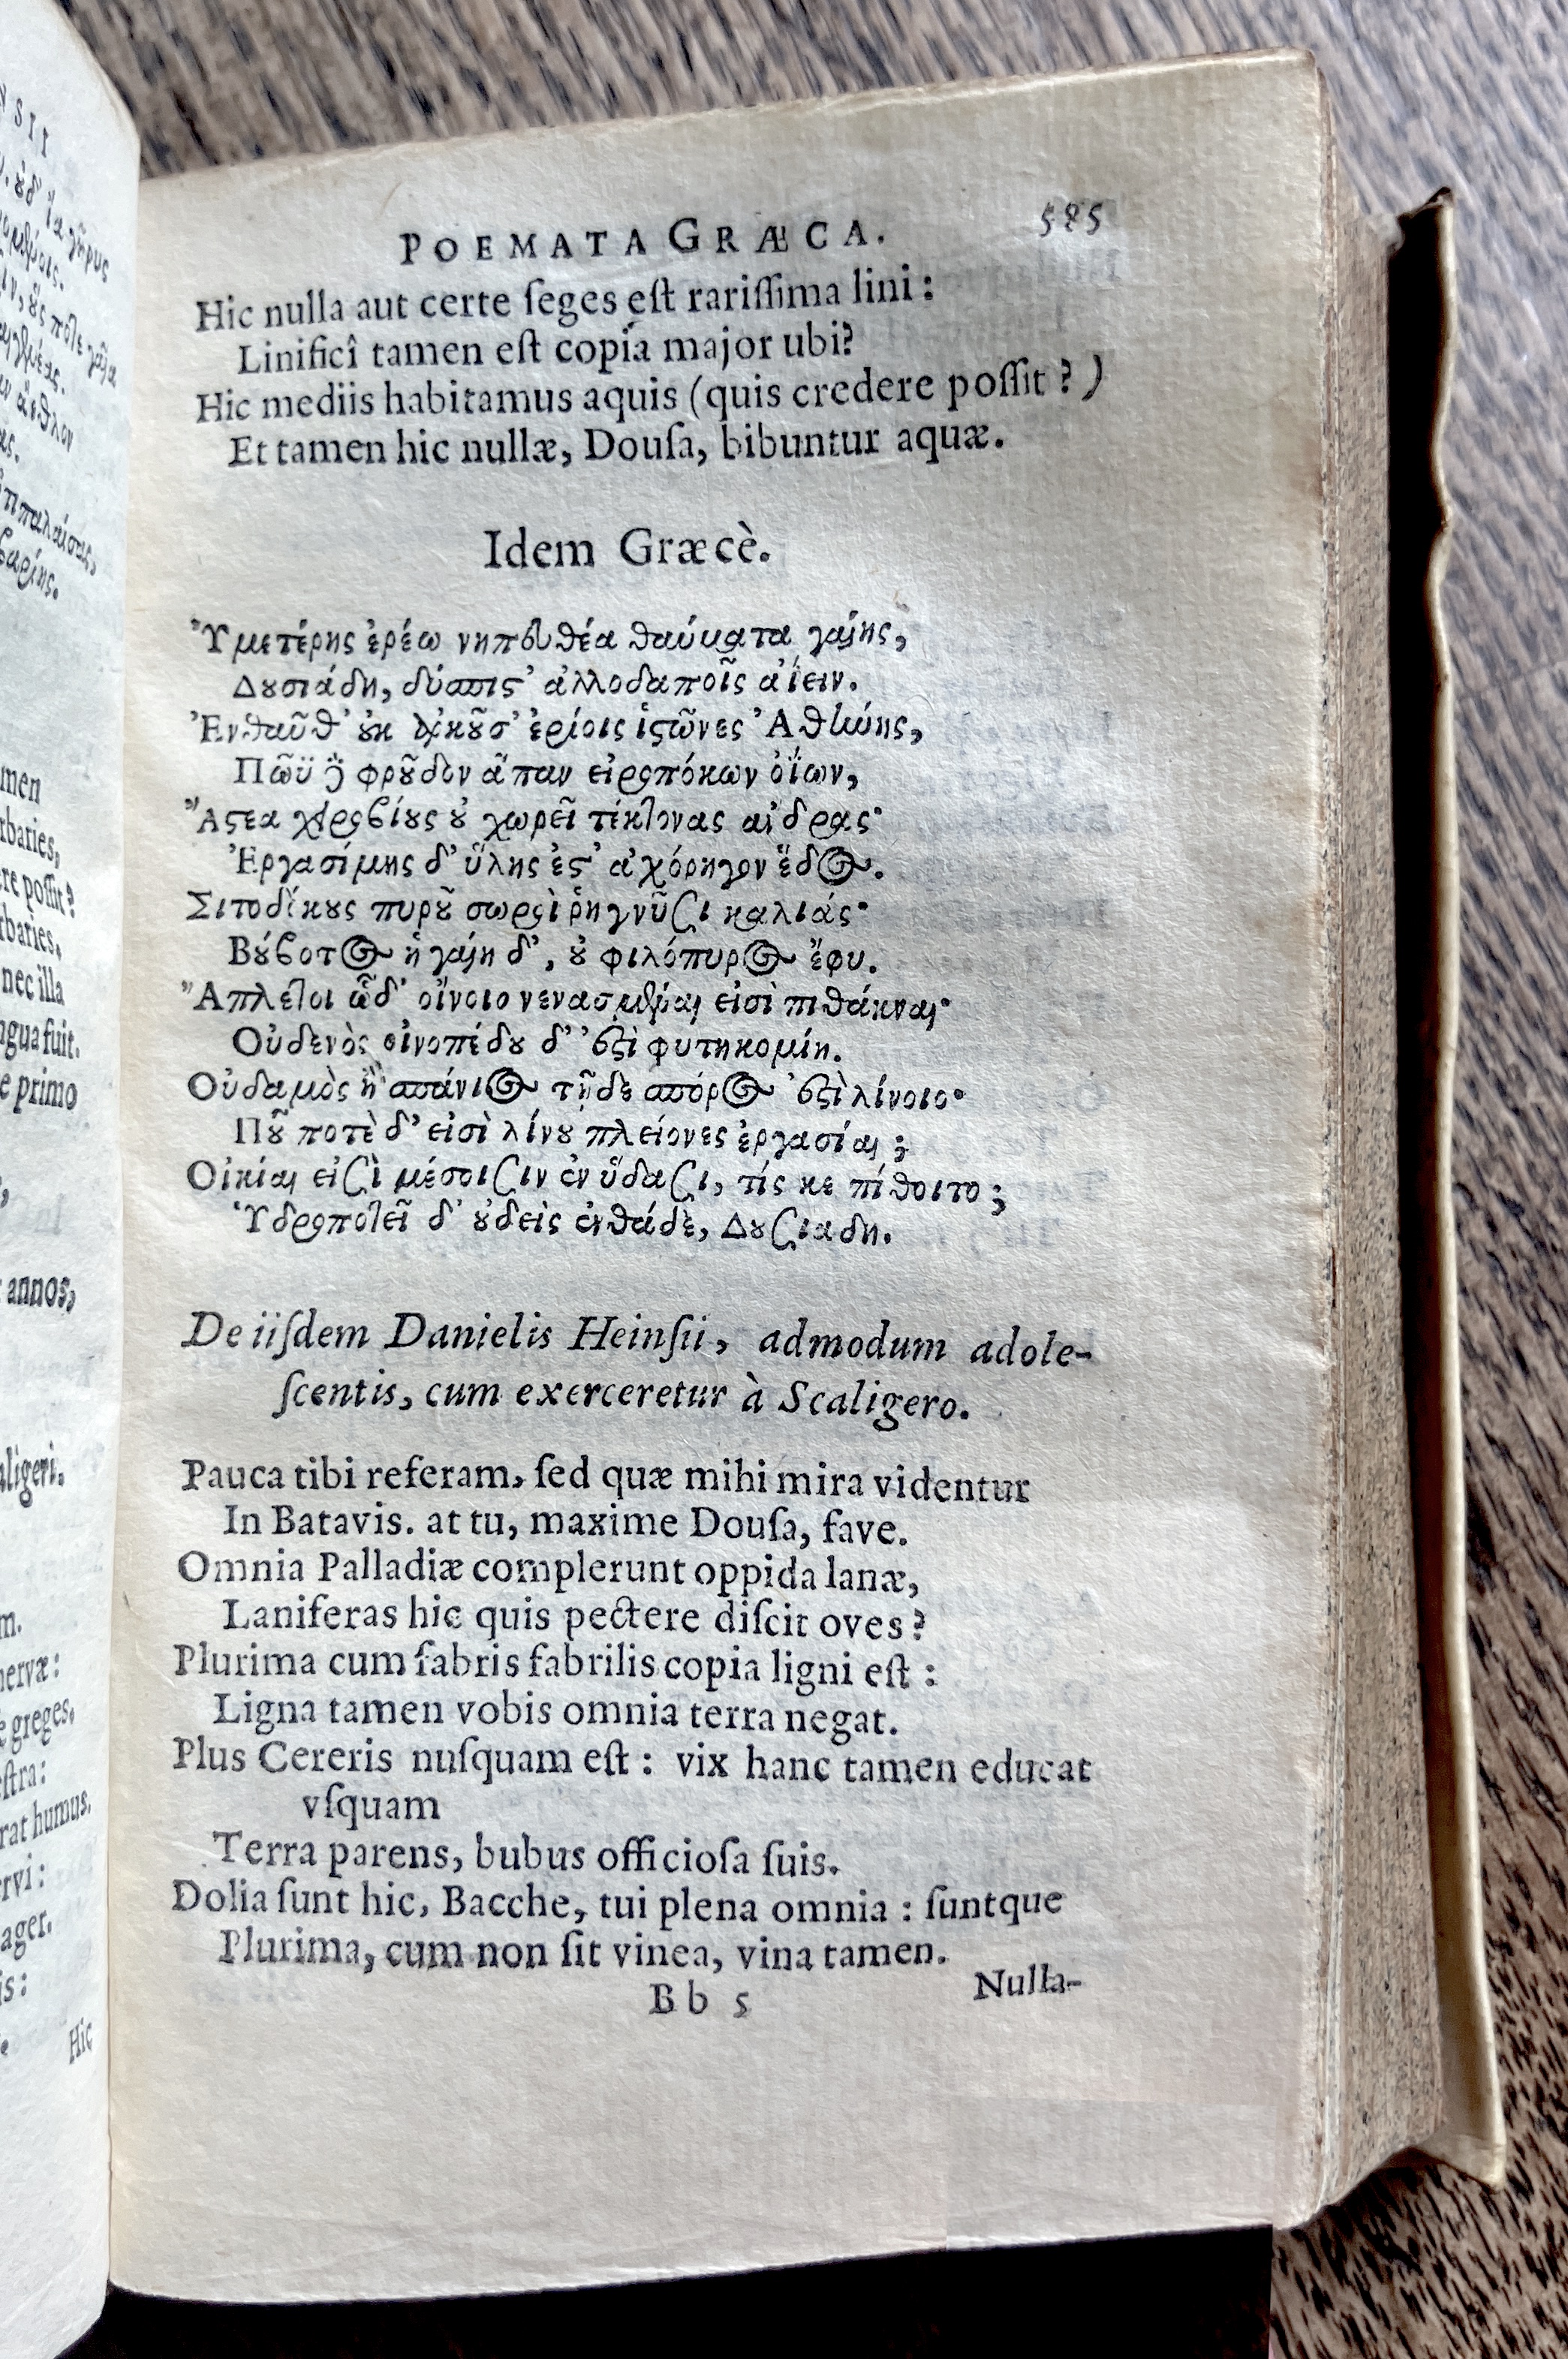 POEMATA GRÆCA. 585
Hic nulla aut certe ſeges eſt rariſſima lini :
Linificî tamen eſt copia major ubi?
Hic mediis habitamus aquis (quis credere poſſit ? )
Et tamen hic nullæ, Douſa, bibuntur aquæ.
Idem Græcè.
Ὑμετέρης ἐρέω νηπευθέα θαύματα γαίης,
Δουσιάδη, δύσπιστ' ἀλλοδαποῖς ἀΐειν.
Ἐνθαῦθ' οὐκ ἀρκοῦσ' ἐρίοις ἱστῶνες Ἀθήνης,
Πῶϋ δὲ φροῦδον ἅπαν εἰροπόκων ὀΐων,
Ἄστεα χειροβίους οὐ χωρεῖ τέκτονας ἄιδρας·
Ἐργασίμης δ' ὕλης ἔστ' ἀχόρηγον ἕδος.
Σιτοδόκους πυροῦ σωροὶ ῥηγνῦσι καλιάς·
Βούβοτος ἡ γαίη δ', οὐ φιλόπυρος ἔφυ.
Ἄπλετοι ὧδ' οἴνοιο νενασμέναι εἰσὶ πιθάκναι·
Οὐδενὸς οἰνοπέδου δ' ἐστὶ φυτηκομίη.
Οὐδαμὸς ἢ σπάνιος τῇδε σπόρος ἐστὶ λίνοιο·
Ποῦ ποτὲ δ' εἰσὶ λίνου πλείονες ἐργασίαι ;
Οἰκίαι εἰσὶ μέσοισιν ἐν ὕδασι, τίς κε πίθοιτο ;
Ὑδροποτεῖ δ' οὐδεὶς ἐνθάδε, Δουσιαδη.
De iiſdem Danielis Heinſii, admodum adole-
ſcentis, cum exerceretur à Scaligero.
Pauca tibi referam, ſed quæ mihi mira videntur
In Batavis. at tu, maxime Douſa, fave.
Omnia Palladiæ complerunt oppida lanæ,
Laniferas hic quis pectere diſcit oves?
Plurima cum fabris fabrilis copia ligni eſt :
Ligna tamen vobis omnia terra negat.
Plus Cereris nuſquam eſt : vix hanc tamen educat
vſquam
Terra parens, bubus officioſa ſuis.
Dolia ſunt hic, Bacche, tui plena omnia : ſuntque
Plurima, cum non ſit vinea, vina tamen.
Bb 5 Nulla-